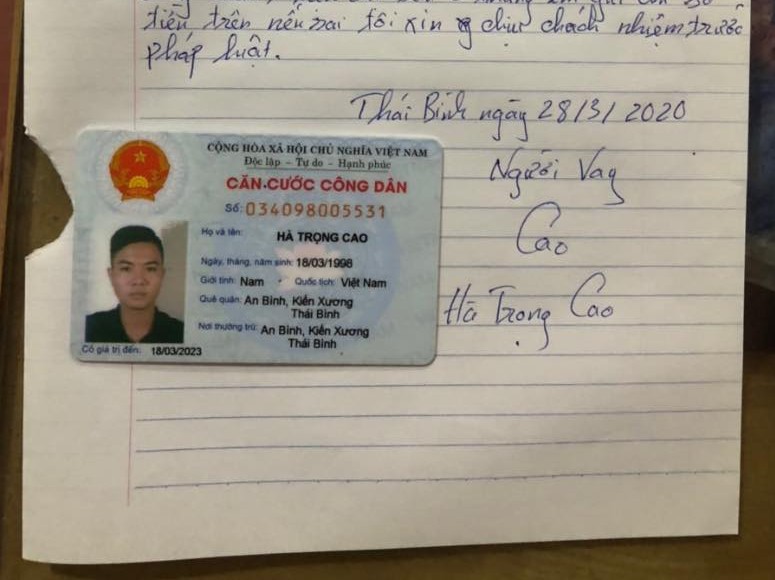 tiền trên nếu sai tôi xin chịu chách nhiệm trước
pháp luật.
Thái Bình ngày 28/3/2020
Người Vay
Cao
Hà Trọng Cao
CỘNG HÒA XÃ HỘI CHỦ NGHĨA VIỆT NAM
Độc lập – Tự do – Hạnh phúc
CĂN CƯỚC CÔNG DÂN
Số: 034098005531
Họ và tên: HÀ TRỌNG CAO
Ngày, tháng, năm sinh: 18/03/1998
Giới tính: Nam Quốc tịch: Việt Nam
Quê quán: An Bình, Kiến Xương
Thái Bình
Nơi thường trú: An Bình, Kiến Xương
Thái Bình
Có giá trị đến: 18/03/2023